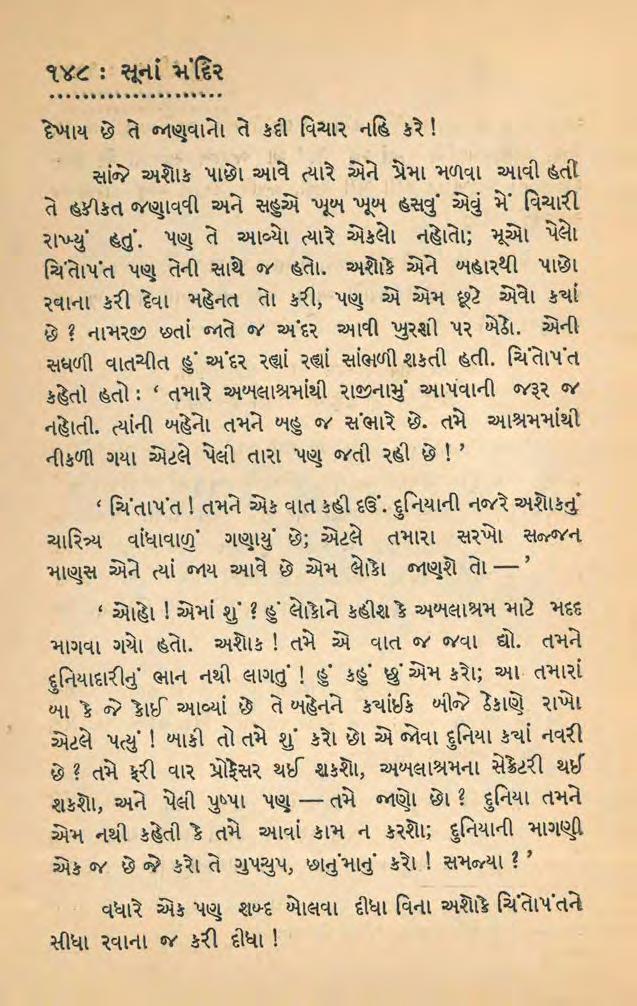 ૧૪૮ : સૂનાં મંદિર
દેખાય છે તે જાણવાનો તે કદી વિચાર નહિ કરે !
સાંજે અશોક પાછો આવે ત્યારે એને પ્રેમા મળવા આવી હતી
તે હકીકત જણાવવી અને સહુએ ખૂબ ખૂબ હસવું એવું મેં વિચારી
રાખ્યું હતું. પણ તે આવ્યો ત્યારે એકલો નહોતો; મૂઓ પેલો
ચિંતોપંત પણ તેની સાથે જ હતો. અશોકે એને બહારથી પાછો
રવાના કરી દેવા મહેનત તો કરી, પણ એ એમ છૂટે એવો કયાં
છે ? નામરજી છતાં જાતે જ અંદર આવી ખુરશી પર બેઠો. એની
સઘળી વાતચીત હું અંદર રહ્યાં રહ્યાં સાંભળી શકતી હતી. ચિંતોપંત
કહેતો હતો : ‘ તમારે અબલાશ્રમમાંથી રાજીનામું આપવાની જરૂર જ
નહોતી. ત્યાંની બહેનો તમને બહુ જ સંભારે છે. તમે આશ્રમમાંથી
નીકળી ગયા એટલે પેલી તારા પણ જતી રહી છે ! ’
‘ ચિંતાપંત ! તમને એક વાત કહી દઉં. દુનિયાની નજરે અશોકનું
ચારિત્ર્ય વાંધાવાળું ગણાયું છે; એટલે તમારા સરખો સજ્જન
માણુસ એને ત્યાં જાય આવે છે એમ લોકો જાણશે તો — ’
‘ ઓહો ! એમાં શું ? હું લોકોને કહીશ કે અબલાશ્રમ માટે મદદ
માગવા ગયો હતો. અશોક ! તમે એ વાત જ જવા દ્યો. તમને
દુનિયાદારીનું ભાન નથી લાગતું ! હું કહું છું એમ કરો; આ તમારાં
બા કે જે કોઈ આવ્યાં છે તે બહેનને કયાંઈક બીજે ઠેકાણે રાખો
એટલે પત્યું ! બાકી તો તમે શું કરો છો એ જોવા દુનિયા કયાં નવરી
છે ? તમે ફરી વાર પ્રોફેસર થઈ શકશો, અબલાશ્રમના સેક્રેટરી થઈ
શકશો, અને પેલી પુષ્પા પણ — તમે જાણો છો ? દુનિયા તમને
એમ નથી કહેતી કે તમે આવાં કામ ન કરશો; દુનિયાની માગણી
એક જ છે જે કરો તે ગુપચુપ, છાનુંમાનું કરો ! સમજ્યા ? ’
વધારે એક પણ શબ્દ બોલવા દીધા વિના અશોકે ચિંતોપંતને
સીધા રવાના જ કરી દીધા !